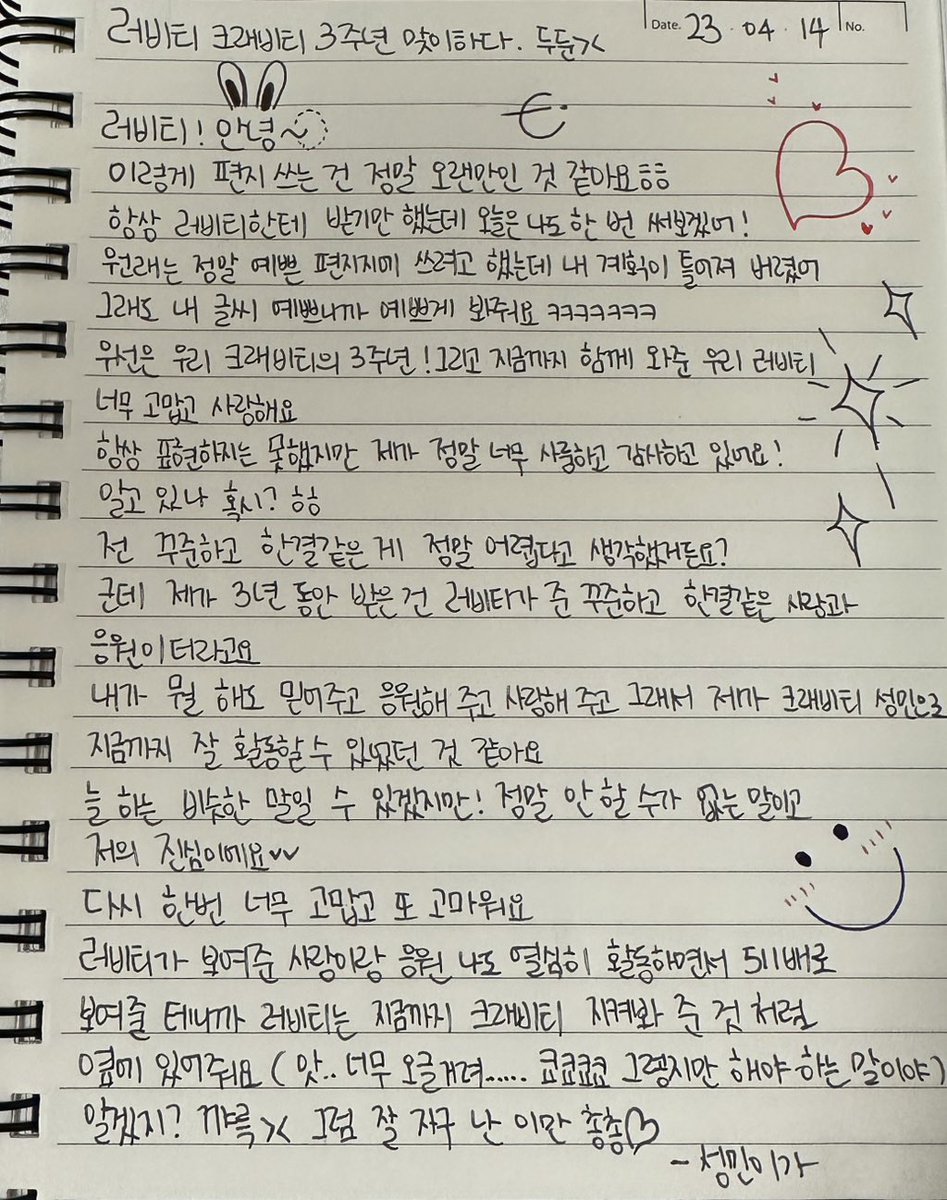 러비티 크래비티 3주년 맞이하다. 두둔><
Date. 23 · 04 · 14 No.
러비티! 안녕~
이렇게 편지 쓰는 건 정말 오랜만인 것 같아요ㅎㅎ
항상 러비티한테 받기만 했는데 오늘은 나도 한 번 써보겠어!
원래는 정말 예쁜 편지지에 쓰려고 했는데 내 계획이 틀어져 버렸어
그래도 내 글씨 예쁘니까 예쁘게 봐줘요 ㅋㅋㅋㅋㅋㅋㅋ
우선은 우리 크래비티의 3주년! 그리고 지금까지 함께 와준 우리 러비티
너무 고맙고 사랑해요
항상 표현하지는 못했지만 제가 정말 너무 사릉하고 감사하고 있어요!
알고 있나 혹시? ㅎㅎ
전 꾸준하고 한결같은 게 정말 어렵다고 생각했거든요?
근데 제가 3년 동안 받은 건 러비티가 준 꾸준하고 한결같은 사랑과
응원이더라고요
내가 뭘 해도 믿어주고 응원해 주고 사랑해 주고 그래서 제가 크래비티 성민으로
지금까지 잘 활동할 수 있었던 것 같아요
늘 하는 비슷한 말일 수 있겠지만! 정말 안 할 수가 없는 말이고
저의 진심이에요
다시 한번 너무 고맙고 또 고마워요
러비티가 보여준 사랑이랑 응원 나도 열심히 활동하면서 511배로
보여줄 테니까 러비티는 지금까지 크래비티 지켜봐 준 것 처럼
옆에 있어줘요 ( 앗.. 너무 오글거려..... 쿄쿄쿄쿄 그렇지만 해야 하는 말이야)
알겠지? 꺄륵>< 그럼 잘 자구 난 이만 총총♡
- 성민이가